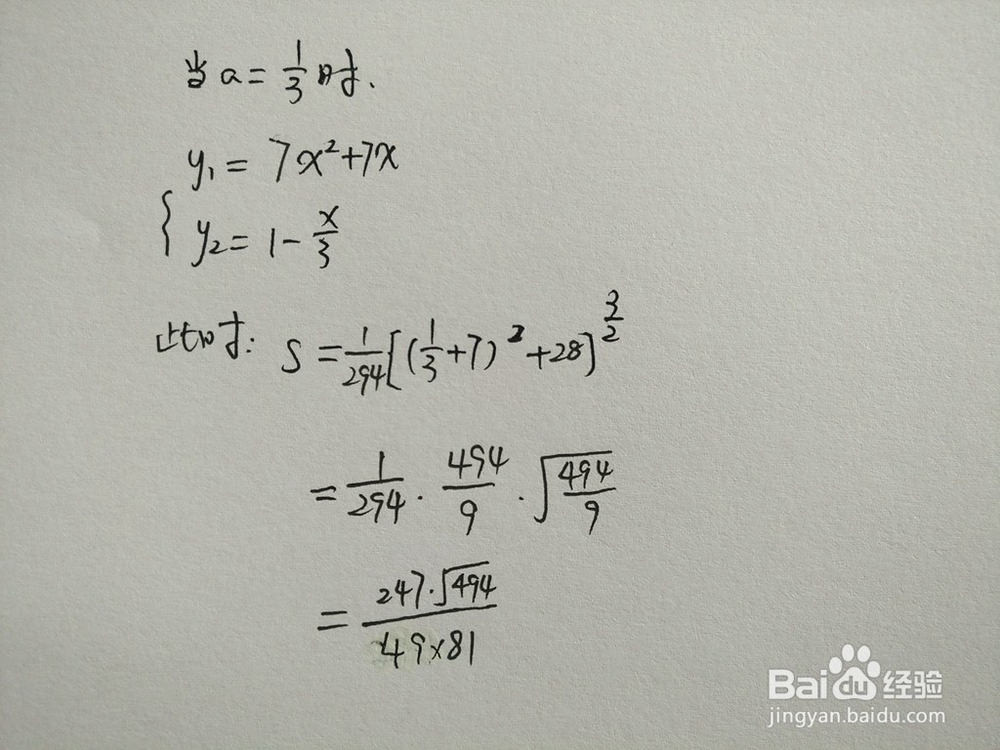 当 a = 1/3 时.
y₁ = 7x²+7x
{ y₂ = 1 - x/3
此时: S = 1/294 [(1/3+7)²+28]^(3/2)
= 1/294 · 494/9 · √(494/9)
= 247·√494 / 49×81
Baidu 经验
jingyan.baidu.com